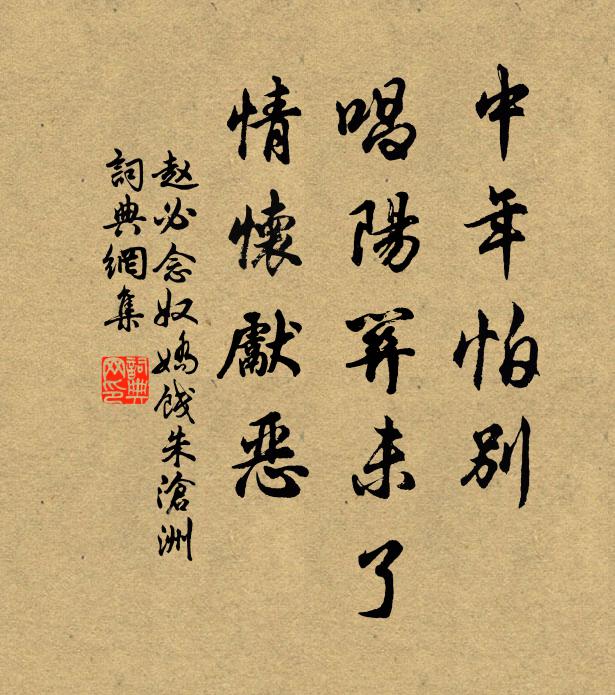 中年怕别
唱陽關未了
情懷獻恶
赵必念奴嬌餞朱滄洲
詞典網集
詞典网印